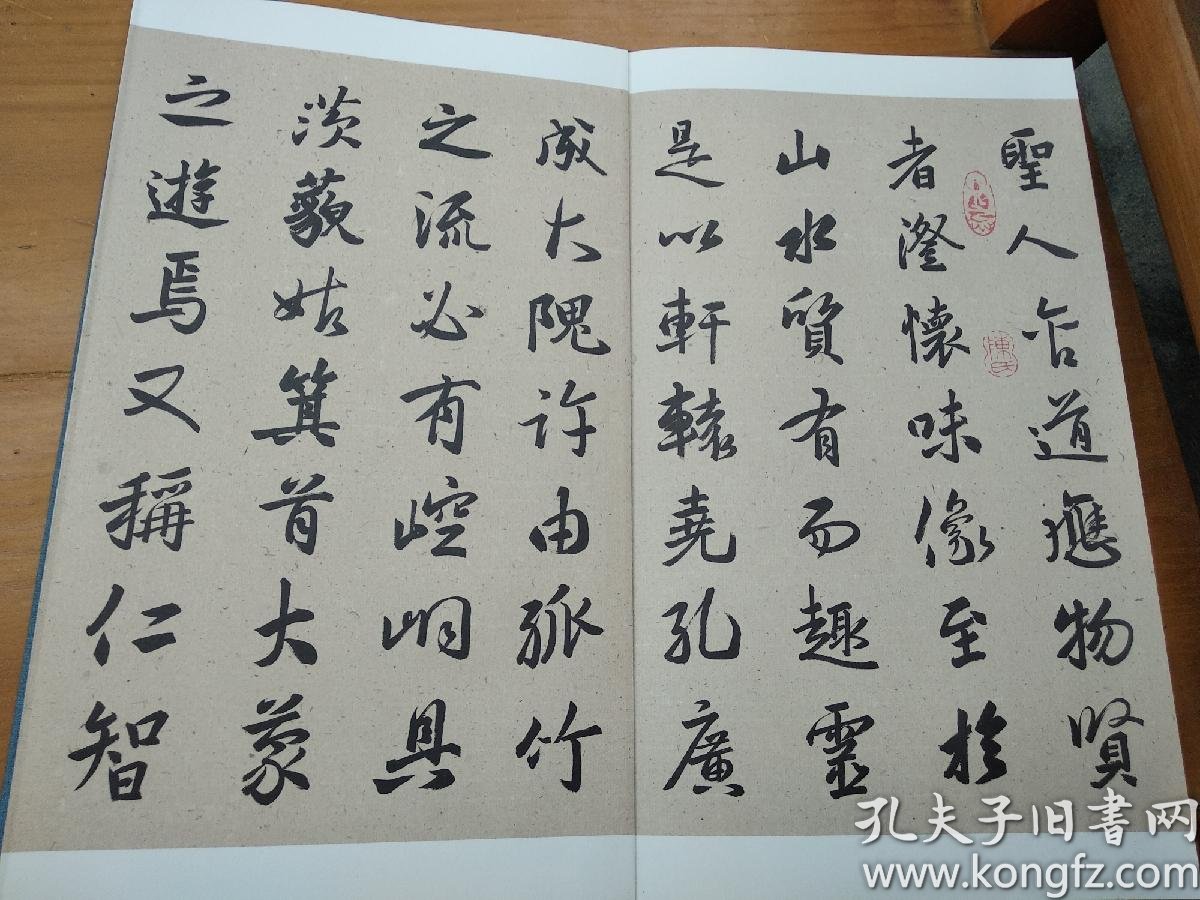 聖人含道應物賢
者澄懷味像至於
山水質有而趣靈
是以軒轅堯孔廣
成大隗許由孤竹
之流必有崆峒具
茨藐姑箕首大蒙
之遊焉又稱仁智
陳氏
孔夫子旧書网
www.kongfz.com